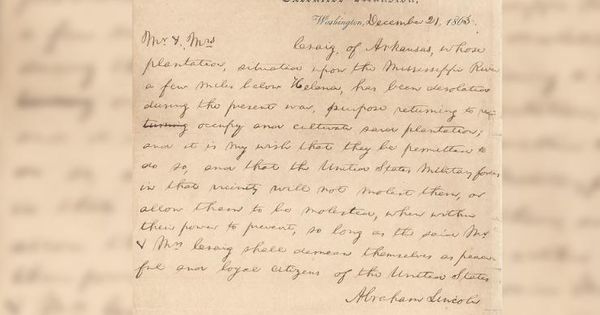 Executive Mansion,
Washington, December 21, 1863.
Mr. & Mrs Craig, of Arkansas, whose
plantation, situation upon the Mississippi River
a few miles below Helena, has been desolated
during the present war, purpose returning to re-
turning occupy and cultivate said plantation;
and it is my wish that they be permitted to
do so, and that the United States Military forces
in that vicinity will not molest them, or
allow them to be molested, when within
their power to prevent, so long as the said Mr.
& Mrs Craig shall demean themselves as peace-
ful and loyal citizens of the United States
Abraham Lincoln